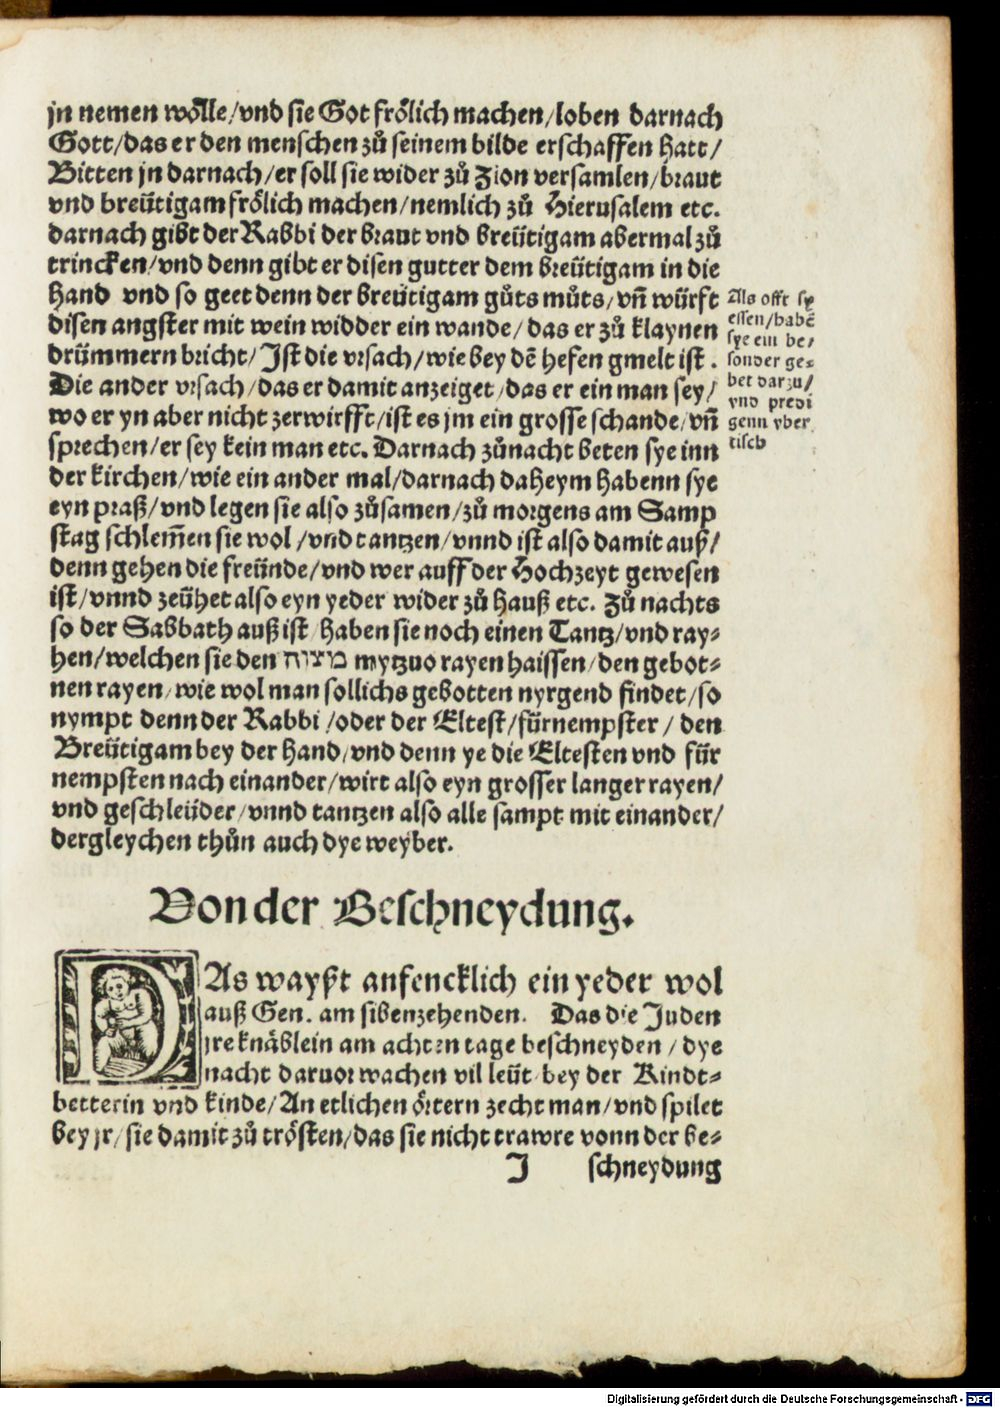 jn nemen woͤlle/vnd sie Got froͤlich machen/loben darnach
Gott/das er den menschen zů seinem bilde erschaffen hatt/
Bitten jn darnach/er soll sie wider zů Zion versamlen/braut
vnd breütigam froͤlich machen/nemlich zů Hierusalem etc.
darnach gibt der Rabbi der braut vnd breütigam abermal zů
trincken/vnd denn gibt er disen gutter dem breütigam in die
hand vnd so geet denn der breütigam gůts můts/vñ würft
disen angster mit wein widder ein wande/das er zů klaynen
drümmern bricht/Ist die vrsach/wie bey dẽ hefen gmelt ist.
Die ander vrsach/das er damit anzeiget/das er ein man sey/
wo er yn aber nicht zerwirfft/ist es jm ein grosse schande/vñ
sprechen/er sey kein man etc. Darnach zůnacht beten sye inn
der kirchen/wie ein ander mal/darnach daheym habenn sye
eyn praß/vnd legen sie also zůsamen/zů morgens am Samp
stag schlem̃en sie wol/vnd tantzen/vnnd ist also damit auß/
denn gehen die freünde/vnd wer auff der Hochzeyt gewesen
ist/vnnd zeühet also eyn yeder wider zů hauß etc. Zů nachts
so der Sabbath auß ist/haben sie noch einen Tantz/vnd ray⸗
hen/welchen sie den מצוה mytzuo rayen haissen/den gebot⸗
nen rayen/wie wol man sollichs gebotten nyrgend findet/so
nympt denn der Rabbi/oder der Eltest/fürnempster/den
Breütigam bey der hand/vnd denn ye die Eltesten vnd für
nempsten nach einander/wirt also eyn grosser langer rayen/
vnd geschleüder/vnnd tantzen also alle sampt mit einander/
dergleychen thůn auch dye weyber.
Als offt sy
essen/habẽ
sye ein be/
sonder ge⸗
bet darzu/
vnd predi
genn yber
tisch
Von der Beschneydung.
DAs wayßt anfencklich ein yeder wol
auß Gen. am sibenzehenden. Das die Juden
jre knäblein am achten tage beschneyden/dye
nacht daruor wachen vil leüt bey der Kindt⸗
betterin vnd kinde/An etlichen oͤrtern zecht man/vnd spilet
bey jr/sie damit zů troͤsten/das sie nicht trawre vonn der be⸗
J schneydung
Digitalisierung gefördert durch die Deutsche Forschungsgemeinschaft - DFG